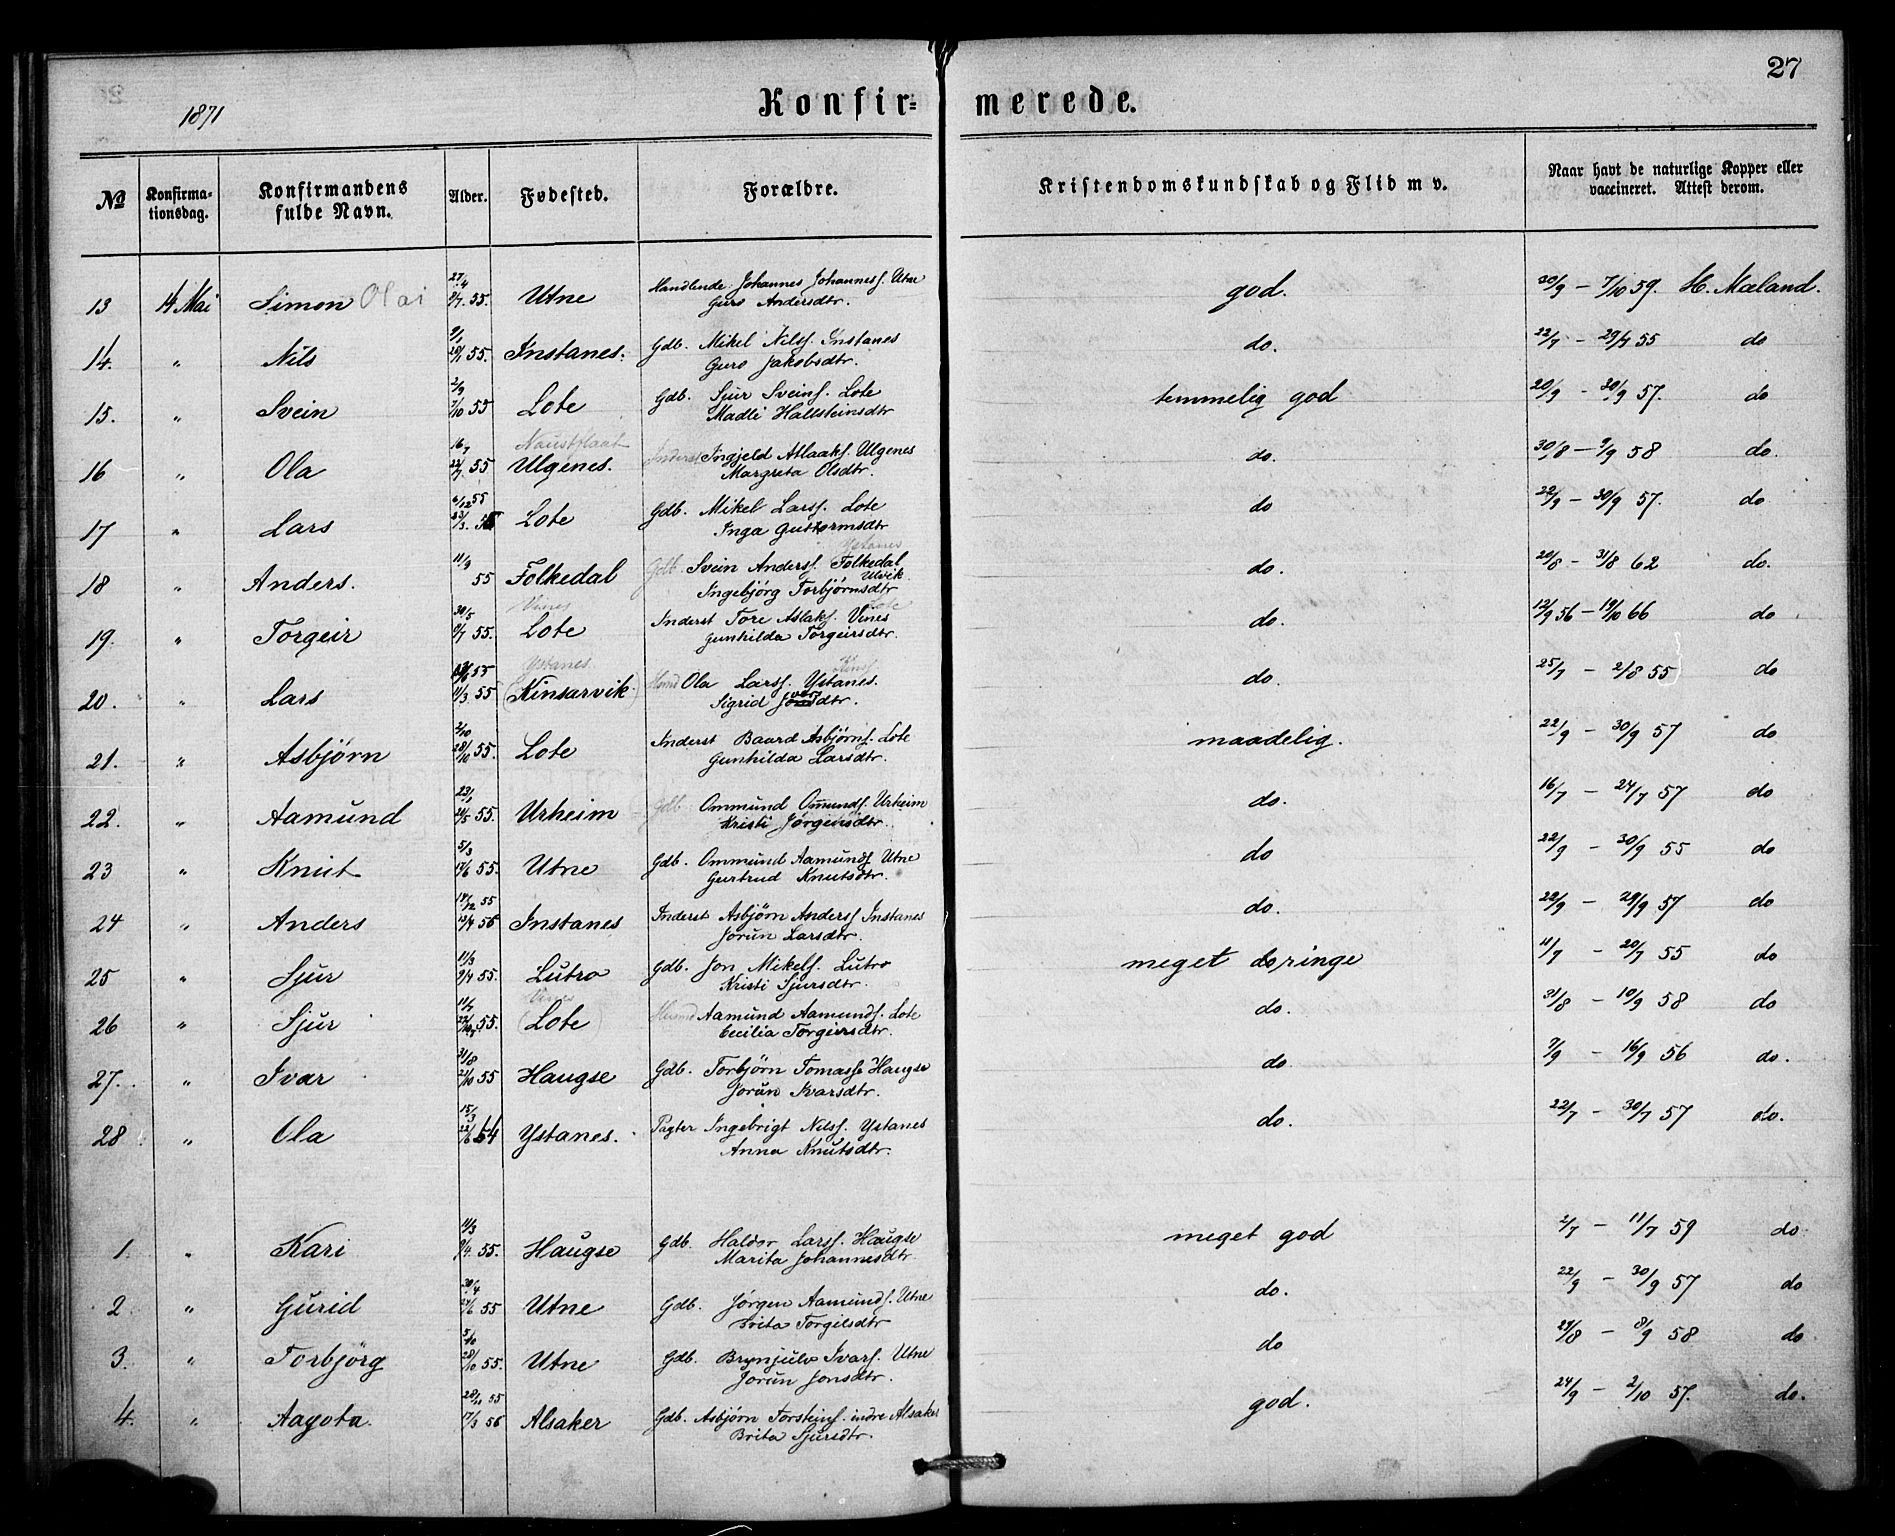 27
1871
Konfir= merede.
No Konfirma-tionsdag. Konfirmandens fulde Navn. Alder. Fødested. Forældre. Kristendomskundskab og Flid m v. Naar havt de naturlige Kopper eller vaccineret. Attest derom.
27/4
13 14 Mai Simon Olai 55. Utne Handlende Johannes Johannesf. Utne god. 30/9 – 7/10 59. H. Mæland.
Guro Andersdtr.
14. " Nils 55. Instanes. Gdb. Mikel Nilsf. Instanes do. 22/7 – 29/7 55 do
Guro Jakobsdtr.
2/9
15. " Svein 7/10 55 Lote Gdb. Sjur Sveinf. Lote temmelig god 20/9 – 30/9 57. do
Madli Hallsteinsdtr
16/7 Naustflaat
16 " Ola 22/7 55 Ulgenes. Inderst Ingjeld Atlaakf. Ulgenes do. 30/8 – 9/9 58 do.
Margreta Olsdtr.
6/12 55
17 " Lars 23/3 Lote Gdb. Mikel Larsf. Lote do 22/9 – 30/9 57. do
Inga Guttormsdtr
Ystanes
11/9
18 " Anders. 55 Folkedal Gdb. Svein Andersf. Folkedal do. 20/8 – 31/8 62 do.
Ulvik
Ingebjörg Torbjörnsdtr
30/5 Vines Lote
19. " Torgeir 55. Lote Inderst Tore Aslakf. Vines do. 12/9 56 – 19/10 66 do
Gunhilda Torgeirsdtr.
55 Ystanes. Kinsf
20. " Lars 11/3 55 (Kinsarvik) Husmd Ola Larsf. Ystanes. do. 25/7 – 2/8 55 do
Sigrid dtr.
2/10
21. " Asbjørn 28/10 55. Lote Inderst Baard Asbjørnf. Lote maadelig. 22/9 – 30/9 57 do
Gunhilda Larsdtr.
22. " Aamund 55. Urheim Gdb. Ommund Omundf. Urheim do. 16/7 – 24/7 57 do
Kristi Jørgensdtr.
5/3
23 " Knut 55. Utne Gdb. Ommund Aamundf Utne do 22/9 – 30/9 55 do
Gertrud Knutsdtr.
14/12 55
24 " Anders 13/4 56 Instanes Inderst Asbjørn Andersf Instanes do. 22/9 – 29/9 57 do
Jorun Larsdtr.
11/3
25 " Sjur 9/4 55. Lutro Gdb. Jon Mikelf. Lutro meget do ringe 11/7 – 20/7 55 do
Kristi Sjursdtr.
11/7 Vines
26 " Sjur 55. (Lote) Husmd Aamund Aamundf. Lote do. 31/8 – 10/9 58 do
Cecilia Torgeirsdtr.
31/8
27. " Ivar 21/10 55 Haugse Gdb. Torbjörn Tomassf Haugse do 7/9 – 16/9 56 do.
Jorun Ivarsdtr.
15/3
28 " Ola 22/6 54 Ystanes. Pagter Ingebrigt Nilsf. Ystanes do. 22/7 – 30/7 57 do.
Anna Knutsdtr.
11/3
1. " Kari 9/4. 55. Haugse Gdb. Haldor Larsf. Haugse meget god 2/7 – 11/7 59 do
Marita Johannesdtr
30/4
2 " Gurid 24/6 55 Utne Gdb. Jörgen Aamundf. Utne do. 22/9 – 30/9 57 do
Brita Torgilsdtr
5/10
3. " Torbjörg 28/10 55. Utne Gdb. Brynjulv Ivarf. Utne do 29/8 – 8/9 58 do
Jorun Jonsdtr.
28/11 55
4. " Aagota. 17/3 56 Alsaker Gdb. Asbjørn Torsteinf. indre Alsaker god. 24/9 – 2/10 57. do.
Brita Sjursdtr.